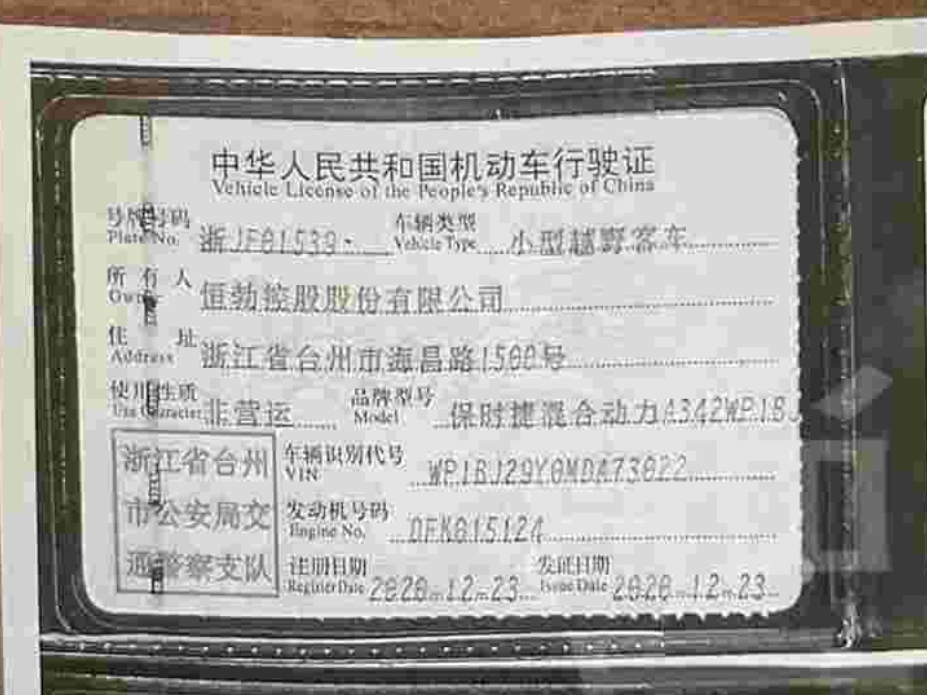 中华人民共和国机动车行驶证
Vehicle License of the People's Republic of China
号牌号码 浙JF01539 车辆类型 小型越野客车
Plate No. Vehicle Type
所有人 恒勃控股股份有限公司
Owner
住址 浙江省台州市海昌路1500号
Address
使用性质 非营运 品牌型号 保时捷混合动力A342WP1BJ
Use Character Model
浙江省台州 车辆识别代号 WP1BJ29Y0MDA73022
VIN
市公安局交 发动机号码 DFK015124
Engine No.
通警察支队 注册日期 2020-12-23 发证日期 2020-12-23
Register Date Issue Date